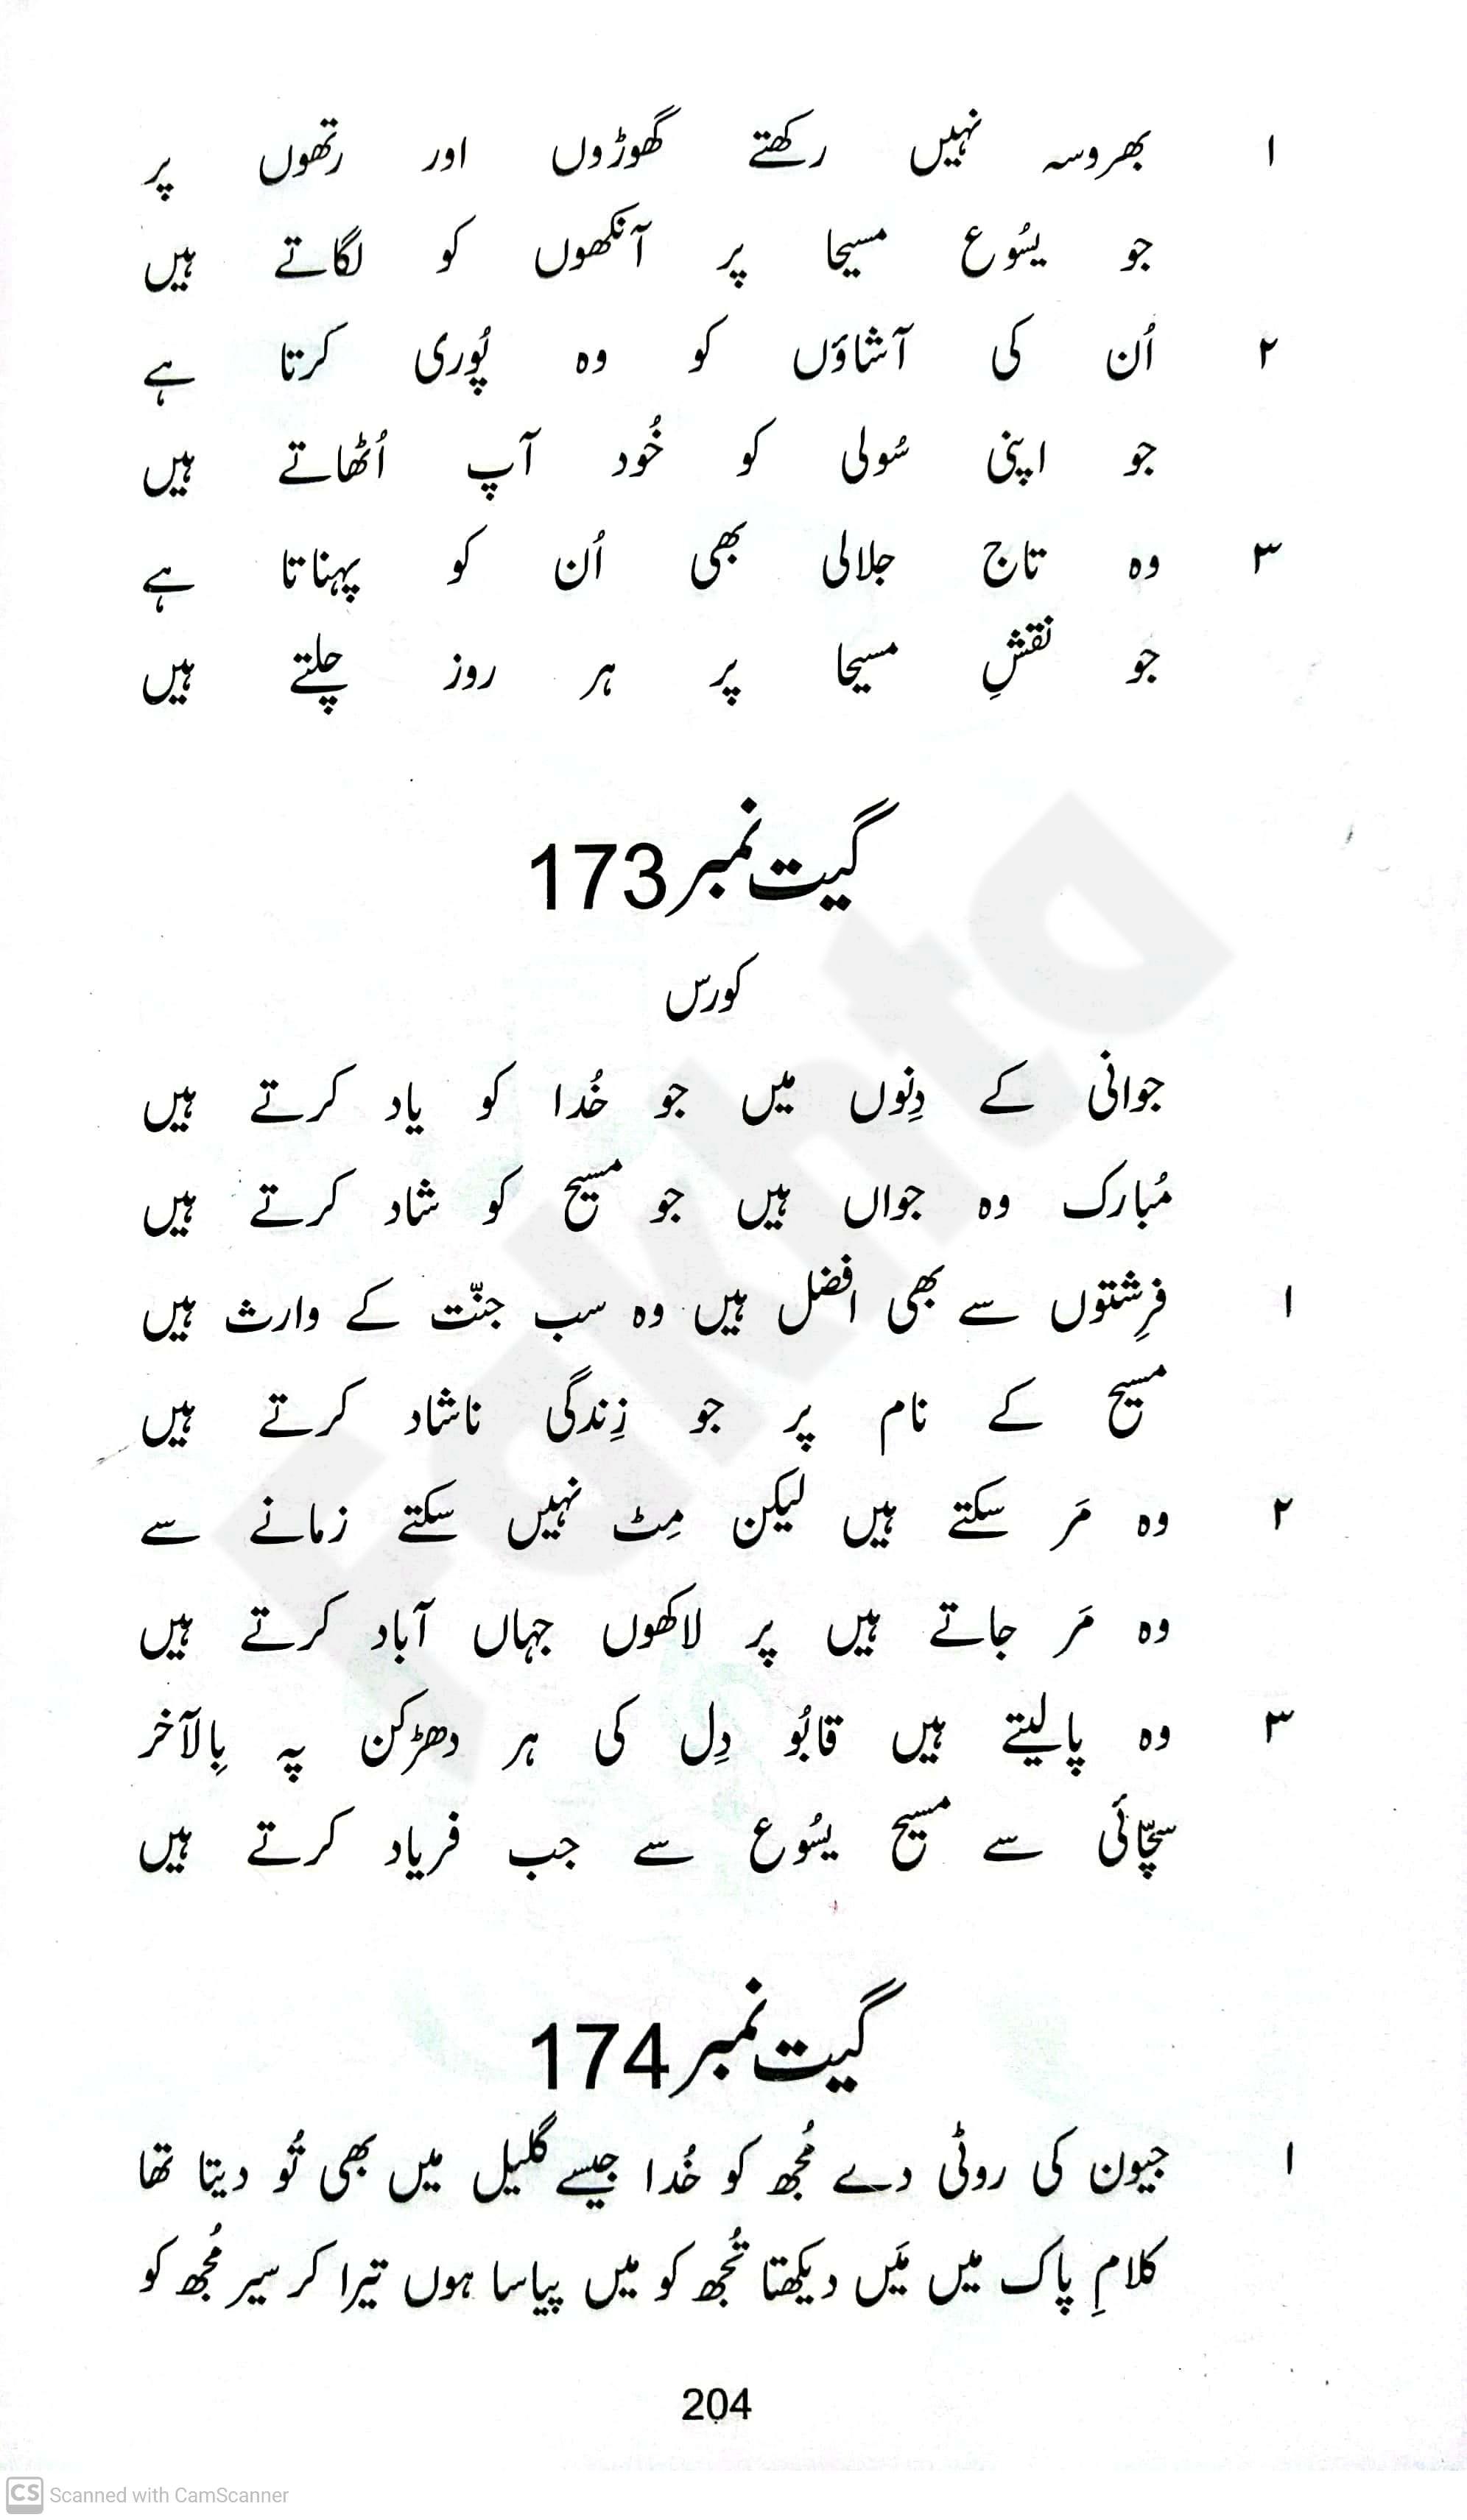 ۱ بھروسہ نہیں رکھتے گھوڑوں اور رتھوں پر
جو یسُوع مسیحا پر آنکھوں کو لگاتے ہیں
۲ اُن کی آشاؤں کو وہ پُوری کرتا ہے
جو اپنی سُولی کو خُود آپ اُٹھاتے ہیں
۳ وہ تاج جلالی بھی اُن کو پہناتا ہے
جو نقشِ مسیحا پر ہر روز چلتے ہیں
گیت نمبر 173
کورس
جوانی کے دِنوں میں جو خُدا کو یاد کرتے ہیں
مُبارک وہ جواں ہیں جو مسیح کو شاد کرتے ہیں
۱ فرِشتوں سے بھی افضل ہیں وہ سب جنّت کے وارث ہیں
مسیح کے نام پر جو زِندگی ناشاد کرتے ہیں
۲ وہ مَر سکتے ہیں لیکن مِٹ نہیں سکتے زمانے سے
وہ مَر جاتے ہیں پر لاکھوں جہاں آباد کرتے ہیں
۳ وہ پالیتے ہیں قابُو دِل کی ہر دھڑکن پہ بِالآخر
سچّائی سے مسیح یسُوع سے جب فریاد کرتے ہیں
گیت نمبر 174
۱ جیون کی روٹی دے مُجھ کو خُدا جیسے گلیل میں بھی تُو دیتا تھا
کلامِ پاک میں مَیں دیکھتا تُجھ کو میں پیاسا ہوں تیرا کر سیر مُجھ کو
204
Fakhta
CS Scanned with CamScanner